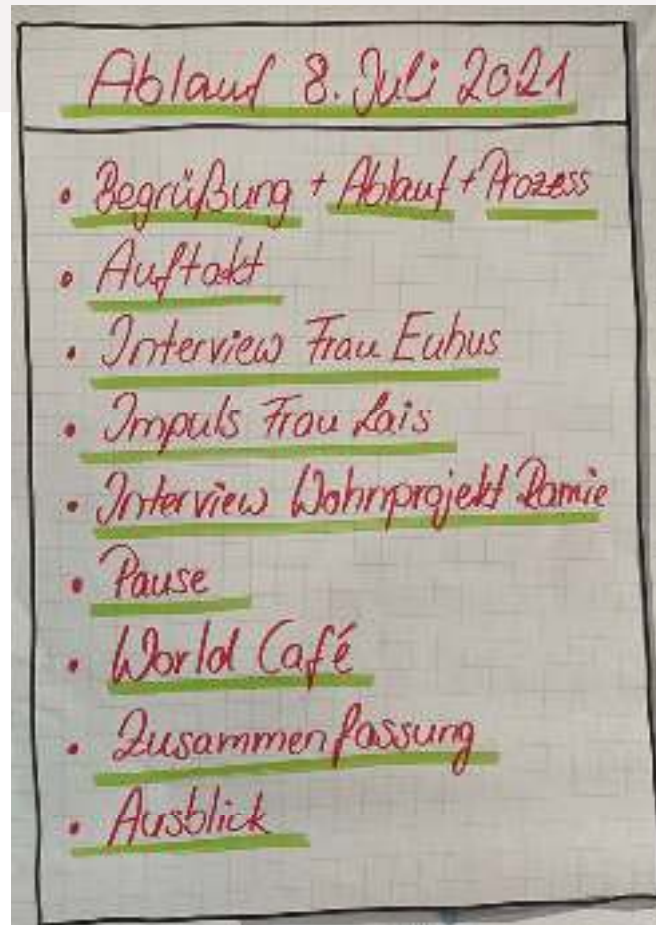 Ablauf 8. Juli 2021
• Begrüßung + Ablauf + Prozess
• Auftakt
• Interview Frau Euhus
• Impuls Frau Lais
• Interview Wohnprojekt Ramie
• Pause
• World Café
• Zusammenfassung
• Ausblick